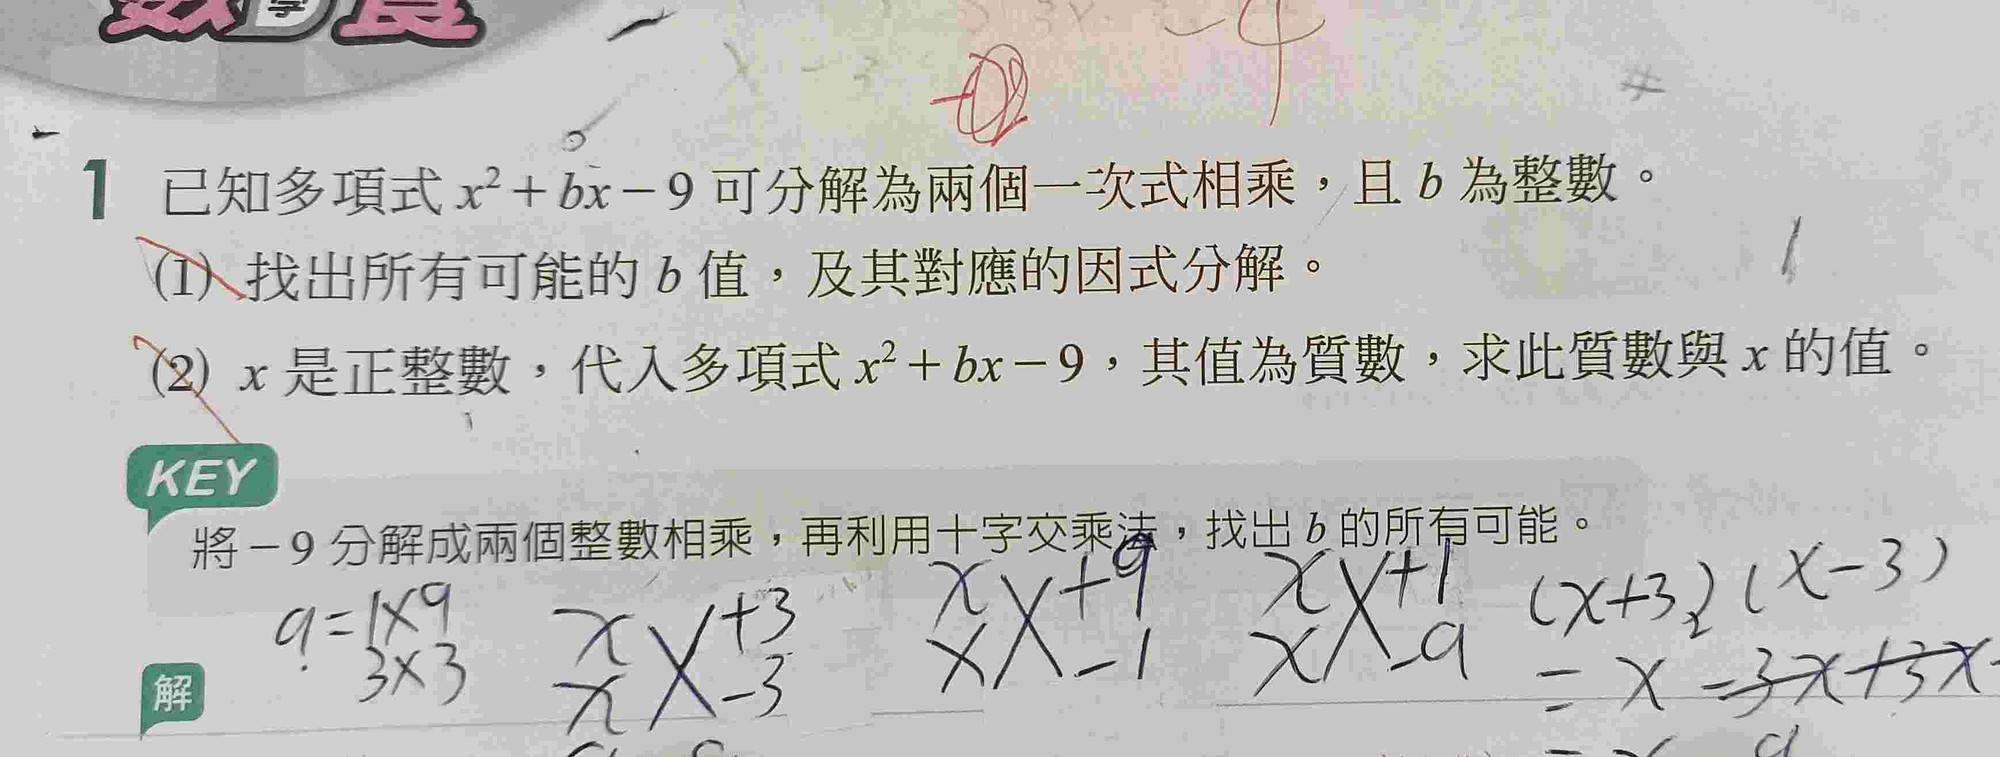 -4
1 已知多項式 x²+bx-9 可分解為兩個一次式相乘，且 b 為整數。
(1) 找出所有可能的 b 值，及其對應的因式分解。
(2) x 是正整數，代入多項式 x²+bx-9，其值為質數，求此質數與 x 的值。
KEY
將-9 分解成兩個整數相乘，再利用十字交乘法，找出 b 的所有可能。
9=1×9 x +3 x +9 x +1 (x+3)(x-3)
3×3 x -3 x -1 x -9 = x -3x+3x
解